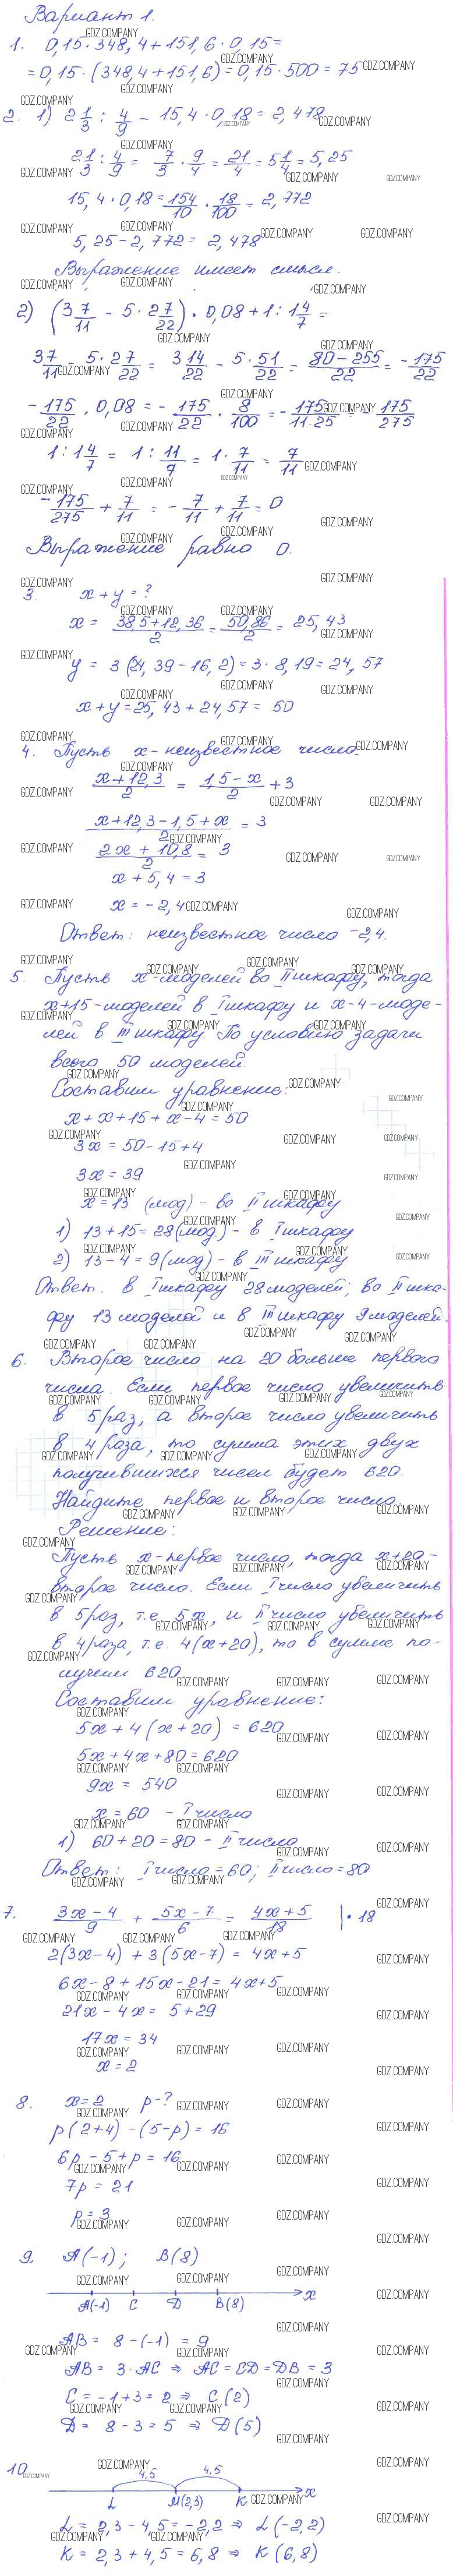 Вариант 1.
1. 0,15·348,4+151,6·0,15=
=0,15·(348,4+151,6)=0,15·500=75
2. 1) 2 1/3 : 4/9 - 15,4·0,18=2,478
2 1/3 : 4/9 = 7/3 · 9/4 = 21/4 = 5 1/4 = 5,25
15,4·0,18 = 154/10 · 18/100 = 2,772
5,25-2,772=2,478
Выражение имеет смысл.
2) (3 7/11 - 5·2 7/22)·0,08+1:1 4/7=
3 7/11 - 5·2 7/22 = 3 14/22 - 5·51/22 = 80-255/22 = -175/22
-175/22 · 0,08 = -175/22 · 8/100 = -175/11·25 = -175/275
1:1 4/7 = 1: 11/7 = 1· 7/11 = 7/11
-175/275 + 7/11 = -7/11 + 7/11 = 0
Выражение равно 0.
3. x+y=?
x = 38,5+12,36/2 = 50,86/2 = 25,43
y = 3(24,39-16,2)=3·8,19=24,57
x+y=25,43+24,57=50
4. Пусть x-неизвестное число.
x+12,3/2 = 1,5-x/2 + 3
x+12,3-1,5+x/2 = 3
2x+10,8/2 = 3
x+5,4=3
x=-2,4
Ответ: неизвестное число -2,4.
5. Пусть x-моделей во II шкафу, тогда
x+15-моделей в I шкафу и x-4-моде-
лей в III шкафу. По условию задачи
всего 50 моделей.
Составим уравнение:
x+x+15+x-4=50
3x=50-15+4
3x=39
x=13 (мод)- во II шкафу
1) 13+15=28(мод)- в I шкафу
2) 13-4=9(мод)- в III шкафу
Ответ. в I шкафу 28 моделей; во II шка-
фу 13 моделей и в III шкафу 9 моделей.
6. Второе число на 20 больше первого
числа. Если первое число увеличить
в 5 раз, а второе число увеличить
в 4 раза, то сумма этих двух
получившихся чисел будет 620.
Найдите первое и второе число.
Решение:
Пусть x-первое число, тогда x+20-
второе число. Если I число увеличить
в 5 раз, т.е. 5x, и II число увеличить
в 4 раза, т.е. 4(x+20), то в сумме по-
лучим 620
Составим уравнение:
5x+4(x+20)=620
5x+4x+80=620
9x=540
x=60 - I число
1) 60+20=80 - II число
Ответ: I число=60; II число=80
7. 3x-4/9 + 5x-7/6 = 4x+5/18 |·18
2(3x-4)+3(5x-7)=4x+5
6x-8+15x-21=4x+5
21x-4x=5+29
17x=34
x=2
8. x=2 p-?
p(2+4)-(5-p)=16
6p-5+p=16
7p=21
p=3
9. A(-1); B(8)
A(-1) C D B(8) x
AB=8-(-1)=9
AB=3·AC ⇒ AC=CD=DB=3
C=-1+3=2 ⇒ C(2)
D=8-3=5 ⇒ D(5)
10.
4,5 4,5
L M(2,3) K x
L=2,3-4,5=-2,2 ⇒ L(-2,2)
K=2,3+4,5=6,8 ⇒ K(6,8)
GDZ.COMPANY